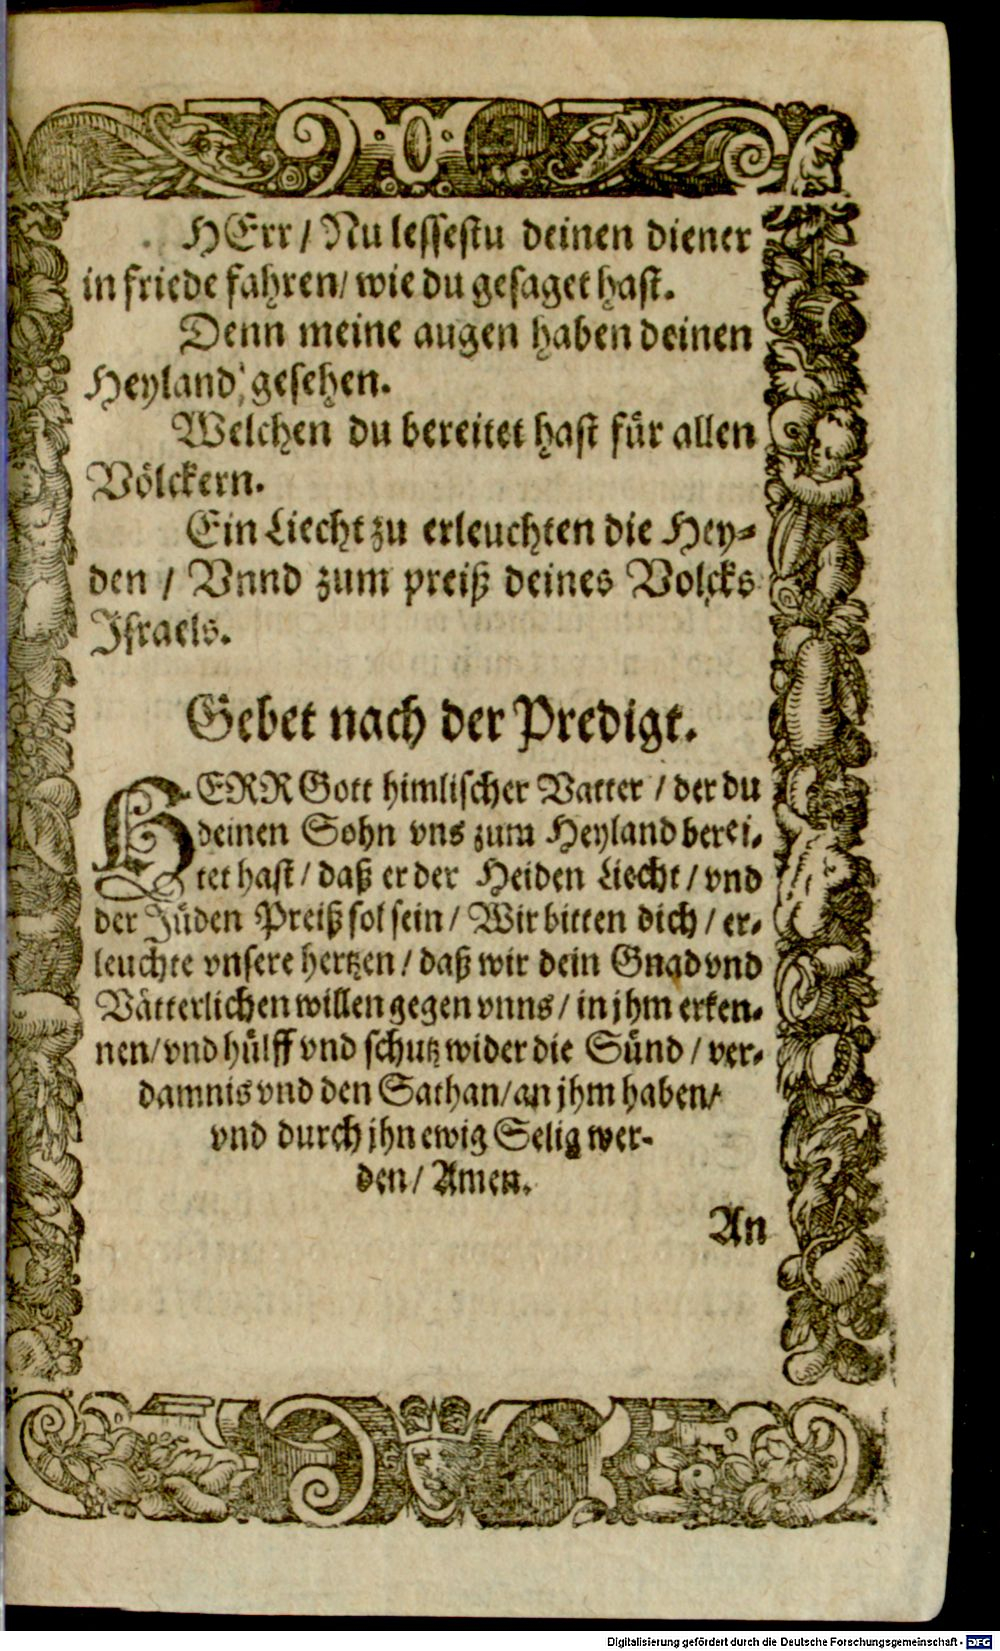 HErr / Nu lessestu deinen diener
in friede fahren / wie du gesaget hast.
Denn meine augen haben deinen
Heyland / gesehen.
Welchen du bereitet hast für allen
Völckern.
Ein Liecht zu erleuchten die Hey-
den / Vnnd zum preiß deines Volcks
Israels.
Gebet nach der Predigt.
HERR Gott himlischer Vatter / der du
deinen Sohn vns zum Heyland berei-
tet hast / daß er der Heiden Liecht / vnd
der Jüden Preiß sol sein / Wir bitten dich / er-
leuchte vnsere hertzen / daß wir dein Gnad vnd
Vätterlichen willen gegen vnns / in jhm erken-
nen / vnd hülff vnd schutz wider die Sünd / ver-
damnis vnd den Sathan / an jhm haben /
vnd durch jhn ewig Selig wer-
den / Amen.
An
Digitalisierung gefördert durch die Deutsche Forschungsgemeinschaft - DFG